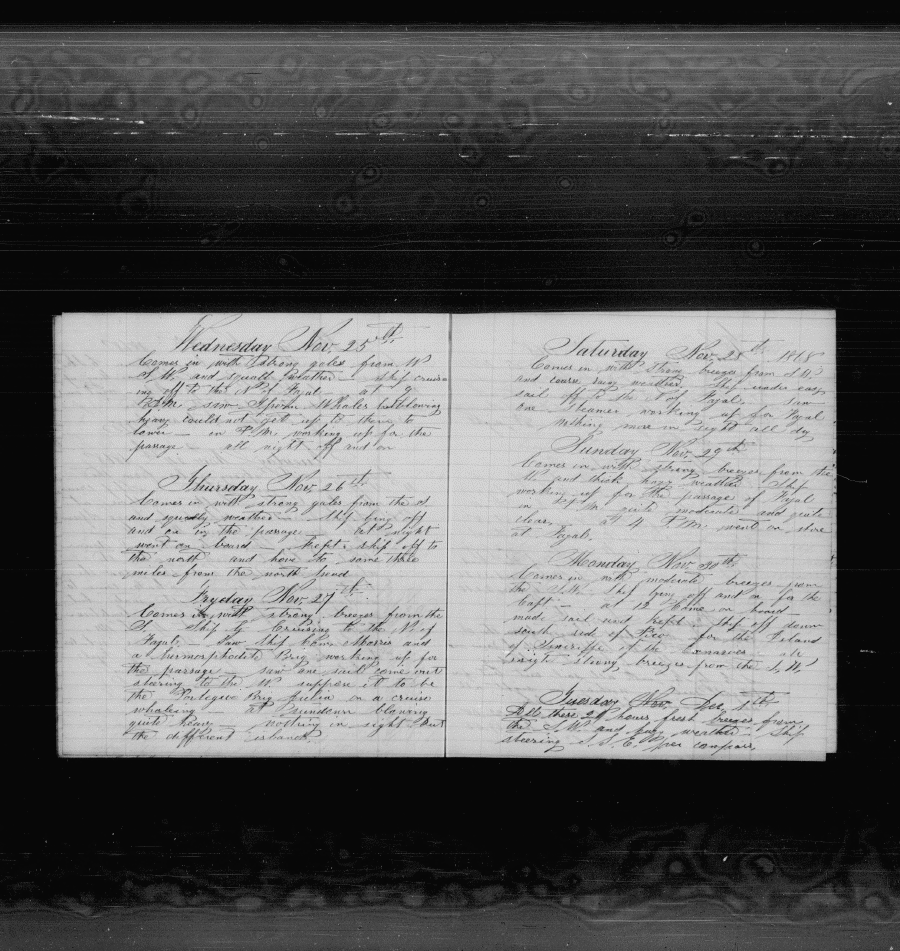 Wednesday Nov. 25th
Comes in with strong gales from W
S.W. and squally weather — Ship cruis
ing off to the N of Fayal at
P.M. saw Whaler but blowing
heavy could not get up to there to
lower — in P.M. working up for the
passage — all night off and on
Thursday Nov. 26th
Comes in with strong gales from the S
and squally weather — Ship lying off
and on in the passage at night
went on board Kept Ship off to
the north and hove to some three
miles from the north head
Fryday Nov. 27th
Comes in with strong breezes from the
S. Ship Cruising to the N. of
Fayal. Saw Ship Morris and
a hermorphodite Brig working up for
the passage saw one sail come out
steering to the W suppose it to be
the Portegee Brig on a cruise
whaleing at Sundown blowing
quite heavy — nothing in sight but
the different islands.
Saturday Nov. 28th 1868
Comes in with Strong breezes from S.W.
and course heavy weather Ship under easy
sail off to the N of Fayal. Saw
One Steamer working up for Fayal
Nothing more in sight all day
Sunday Nov. 29th
Comes in with strong breezes from the
W and thick hazy weather Ship
working up for the passage of Fayal
in P.M. quite moderate and quite
clear. at 4 P.M. went on shore
at Fayal.
Monday Nov 30th
Comes in with moderate breezes from
the S.W. Ship lying off and on for the
Capt — at 12 Came on board
made sail and kept Ship off down
south side of Pico for the Island
of Teneriffe of the Canaries
night strong breezes from the S.W.
Tuesday Nov Dec 1th
All these 24 hours fresh breezes from
the S.W. and weather Ship
steering S.E. per compass.